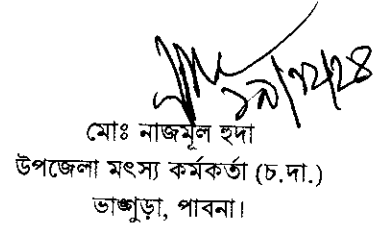 ১৯/১২/২৪
মোঃ নাজমূল হুদা
উপজেলা মৎস্য কর্মকর্তা (চ.দা.)
ভাঙ্গুড়া, পাবনা।